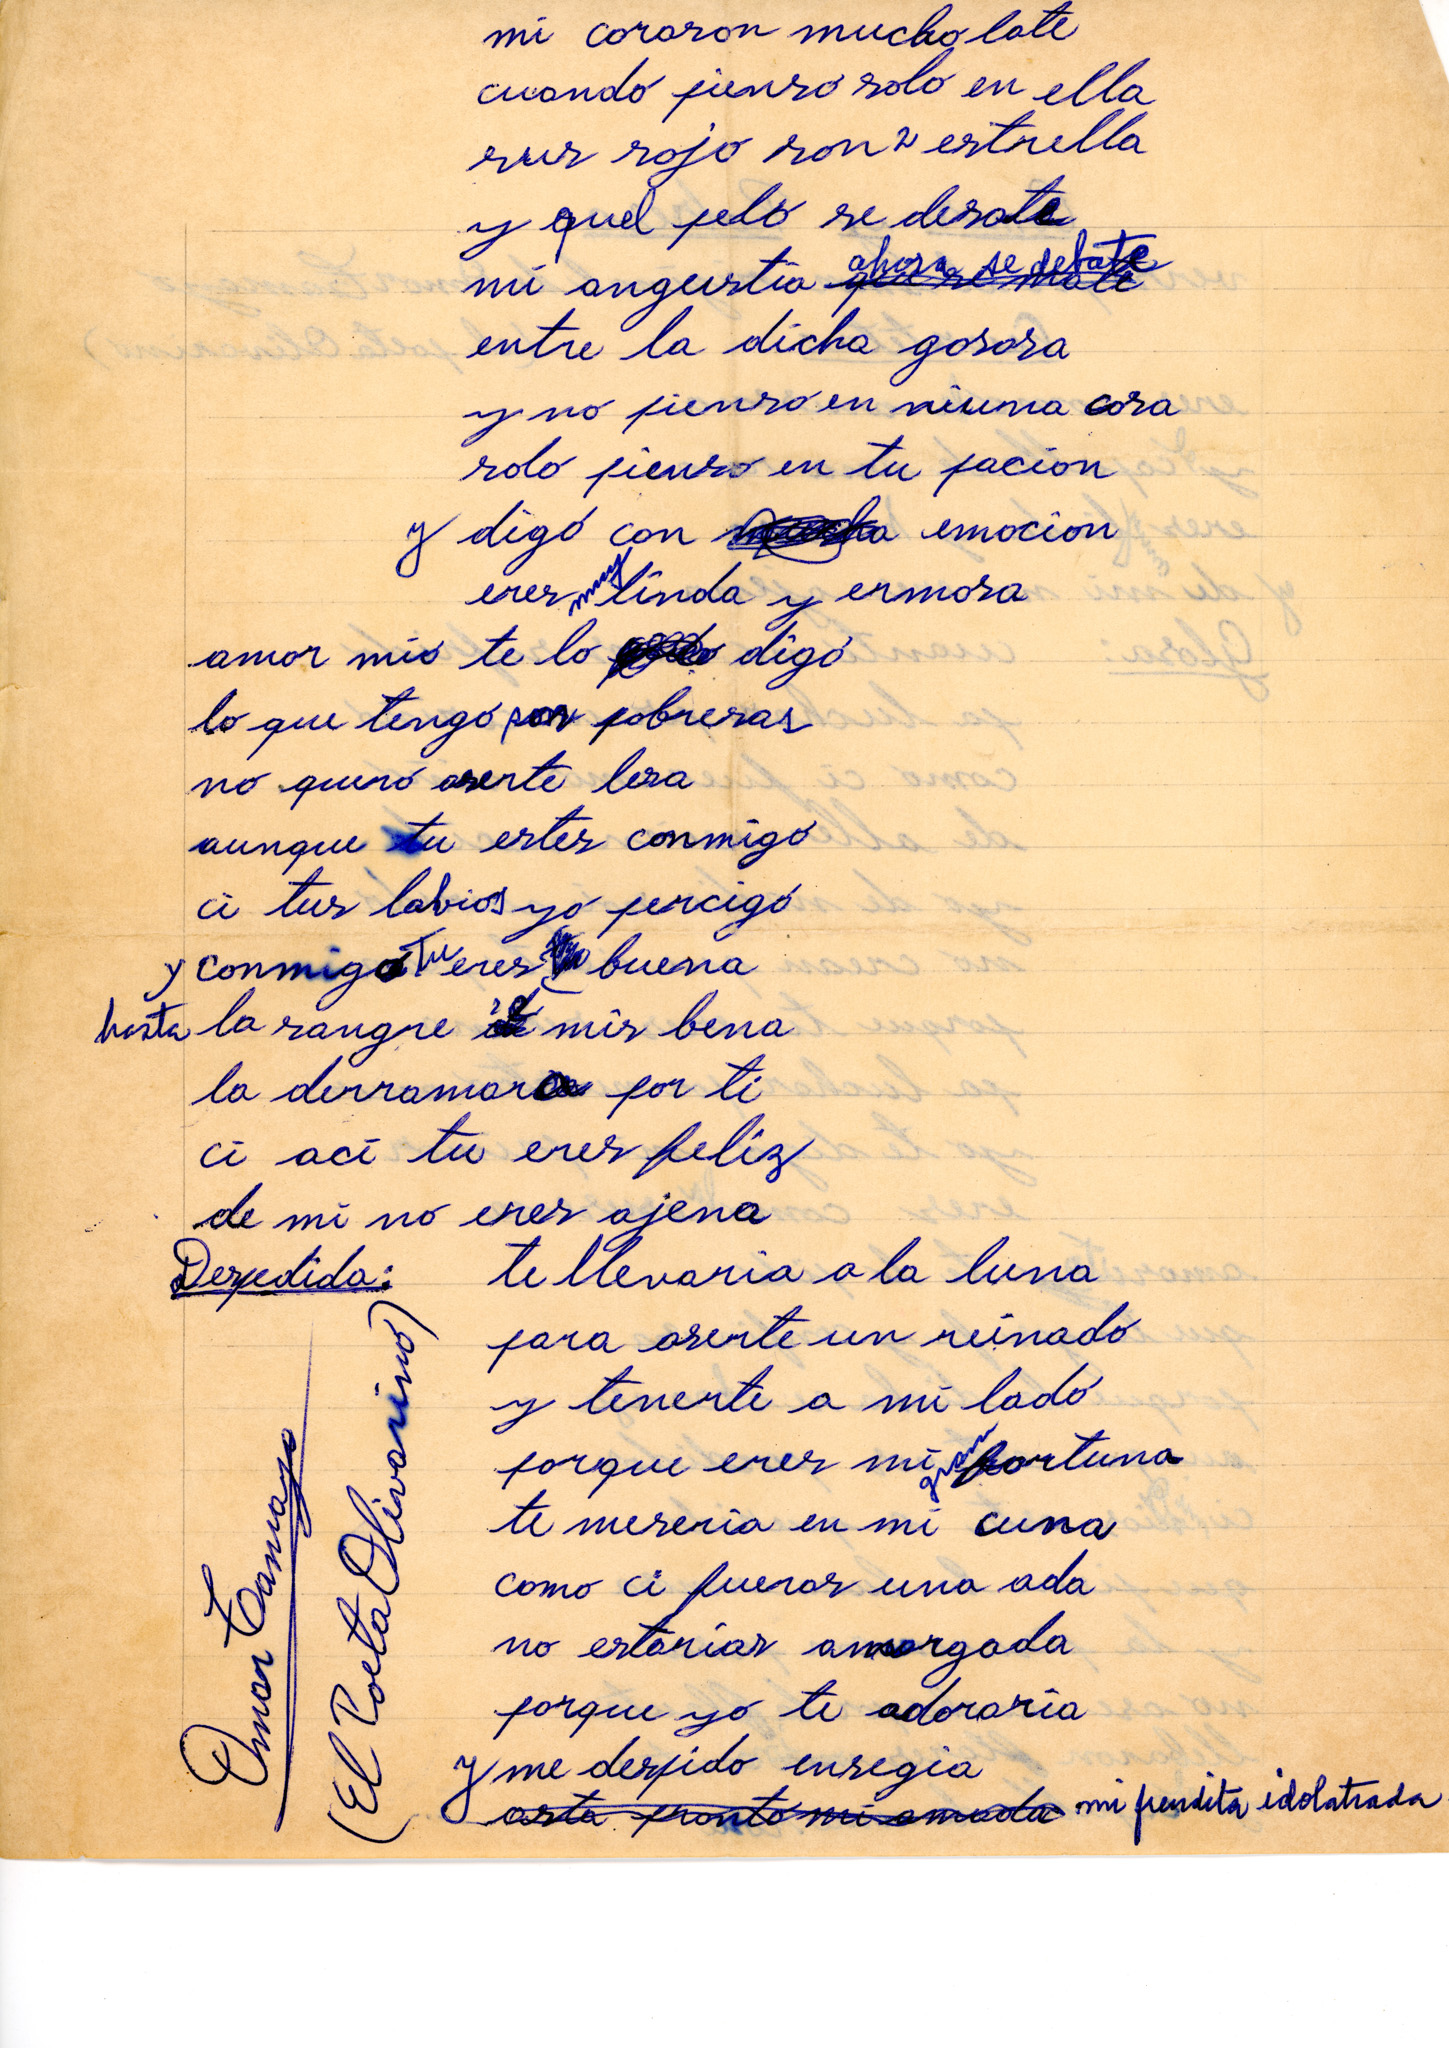 mi corason mucho late
cuando pienso solo en ella
sus sojo son 2 estrella
y quel pelo se desate
mi angustia ahora se debate
entre la dicha gososa
y no pienso en niuna cosa
solo pienso en tu pacion
y digo con emocion
eres muy linda y ermosa
amor mio te lo digo
lo que tengo son pobresas
no quero aserte lesa
aunque tu estes conmigo
ci tus labios yo percigo
y conmigo tu eres buena
hasta la sangre de mis bena
la derramare por ti
ci aci tu eres feliz
de mi no eres ajena
Despedida: te llevaria a la luna
para aserte un reinado
y tenerte a mi lado
porque eres mi gran fortuna
te meseria en mi cuna
como ci fueras una ada
no estarias amargada
porque yo te adoraria
y me despido ensegia
asta pronto mi amada mi prendita idolatrada
Omar Tamayo
(El Poeta Olivarino)